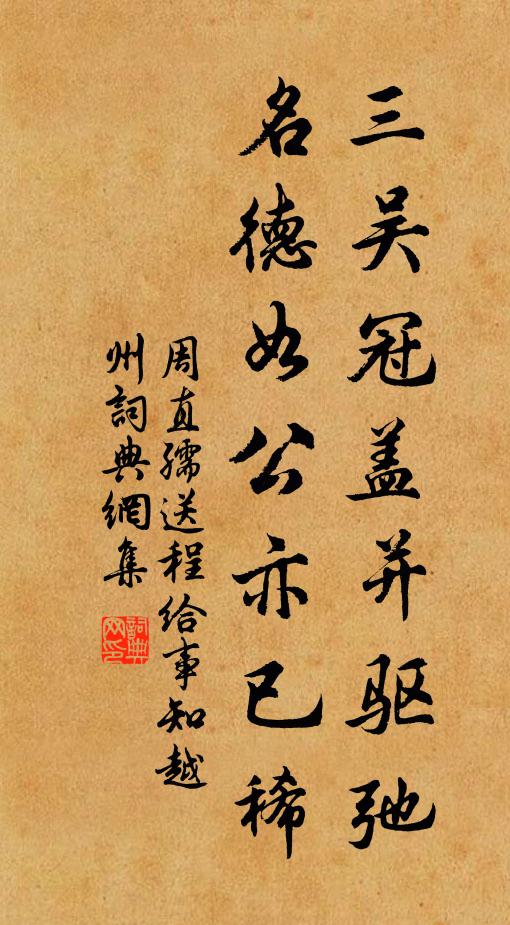 三吴冠盖并驱弛
名德如公亦已稀
周直孺送程给事知越
州詞典網集
詞典网印